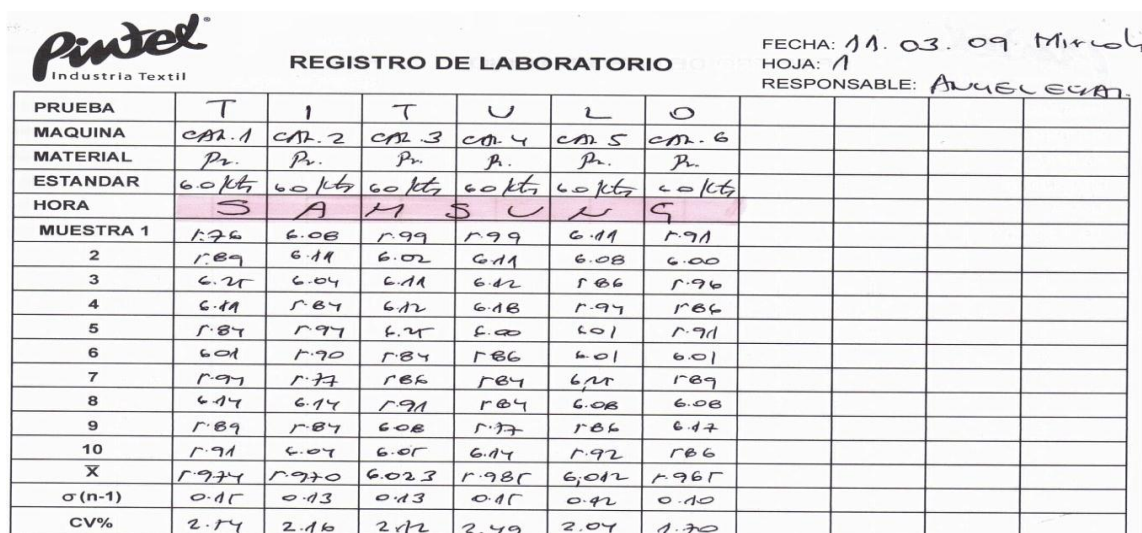 Pintel
Industria Textil
REGISTRO DE LABORATORIO
FECHA: 11. 03. 09
HOJA: 1
RESPONSABLE:
PRUEBA T I T U L O
MAQUINA CAR. 1 CAR. 2 CAR. 3 CAR. 4 CAR. 5 CAR. 6
MATERIAL Pr. Pr. Pr. Pr. Pr. Pr.
ESTANDAR 6.0 ktx 6.0 ktx 6.0 ktx 6.0 ktx 6.0 ktx 6.0 ktx
HORA S A M S U N G
MUESTRA 1 5.76 6.08 5.99 5.99 6.11 5.91
2 5.89 6.11 6.02 6.11 6.08 6.00
3 6.25 6.04 6.11 6.12 5.86 5.96
4 6.11 5.84 6.12 6.18 5.94 5.86
5 5.84 5.94 6.25 6.00 6.01 5.91
6 6.01 5.90 5.84 5.86 6.01 6.01
7 5.94 5.77 5.86 5.84 6.25 5.89
8 6.14 6.14 5.91 5.84 6.08 6.08
9 5.89 5.84 6.08 5.77 5.86 6.17
10 5.91 6.04 6.05 6.14 5.92 5.86
X̄ 5.974 5.970 6.023 5.985 6,012 5.965
σ (n-1) 0.15 0.13 0.13 0.15 0.12 0.10
CV% 2.54 2.16 2.12 2.49 2.04 1.70